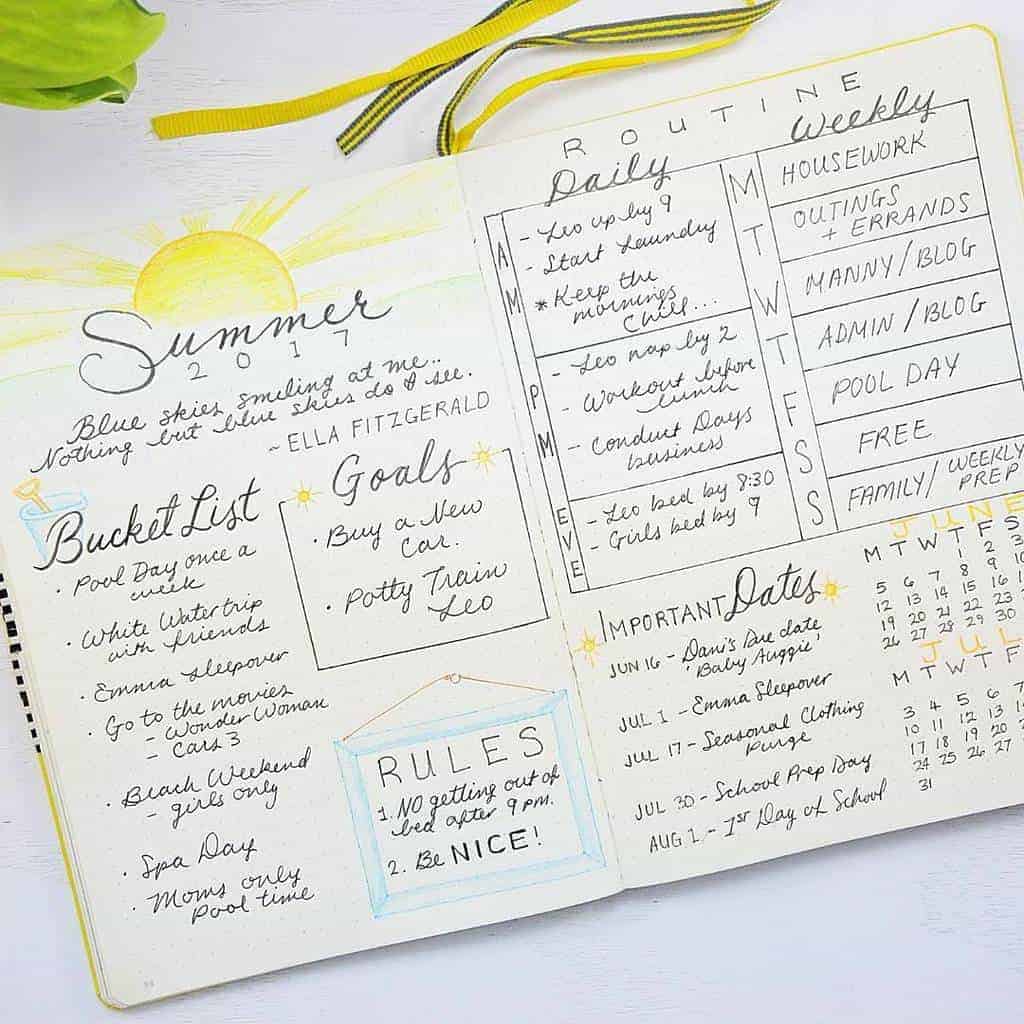 Summer
2017
Blue skies smiling at me..
Nothing but blue skies do I see.
~ELLA FITZGERALD
Bucket List
· Pool Day once a
week
· White Water trip
with friends
· Emma sleepover
· Go to the movies
- Wonder Woman
- Cars 3
· Beach Weekend
- girls only
· Spa Day
· Moms only
pool time
Goals
· Buy a New
Car.
· Potty Train
Leo
RULES
1. NO getting out of
bed after 9 pm.
2. Be NICE!
ROUTINE
Daily
AM
- Leo up by 9
- Start Laundry
* Keep the
mornings
chill...
PM
- Leo nap by 2
- Workout before
lunch
- Conduct Days
business
EVE
- Leo bed by 8:30
- Girls bed by 9
Weekly
M HOUSEWORK
T OUTINGS
+ ERRANDS
W MANNY/BLOG
T ADMIN/BLOG
F POOL DAY
S FREE
S FAMILY/WEEKLY
PREP
IMPORTANT Dates
JUN 16 - Dani's Due date
'Baby Auggie'
JUL 1 - Emma Sleepover
JUL 17 - Seasonal Clothing
Purge
JUL 30 - School Prep Day
AUG 1 - 1st Day of School
JUNE
M T W T F S
1 2 3
5 6 7 8 9
12 13 14 15 16
19 20 21 22 23
26 27 28 29 30
JUL
M T W T F
3 4 5 6 7
10 11 12 13
17 18 19 20
24 25 26 27
31